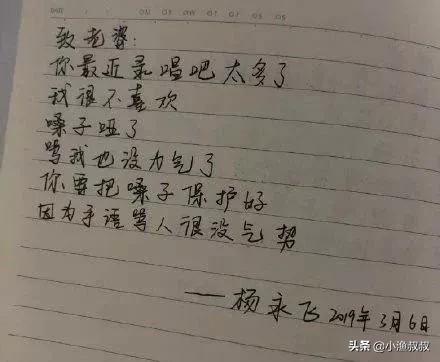 DATE
致老婆:
你最近录唱吧太多了
我很不喜欢
嗓子哑了
骂我也没力气了
你要把嗓子保护好
因为手语骂人很没气势
——杨永飞 2019年3月6日
头条 @小渔叔叔